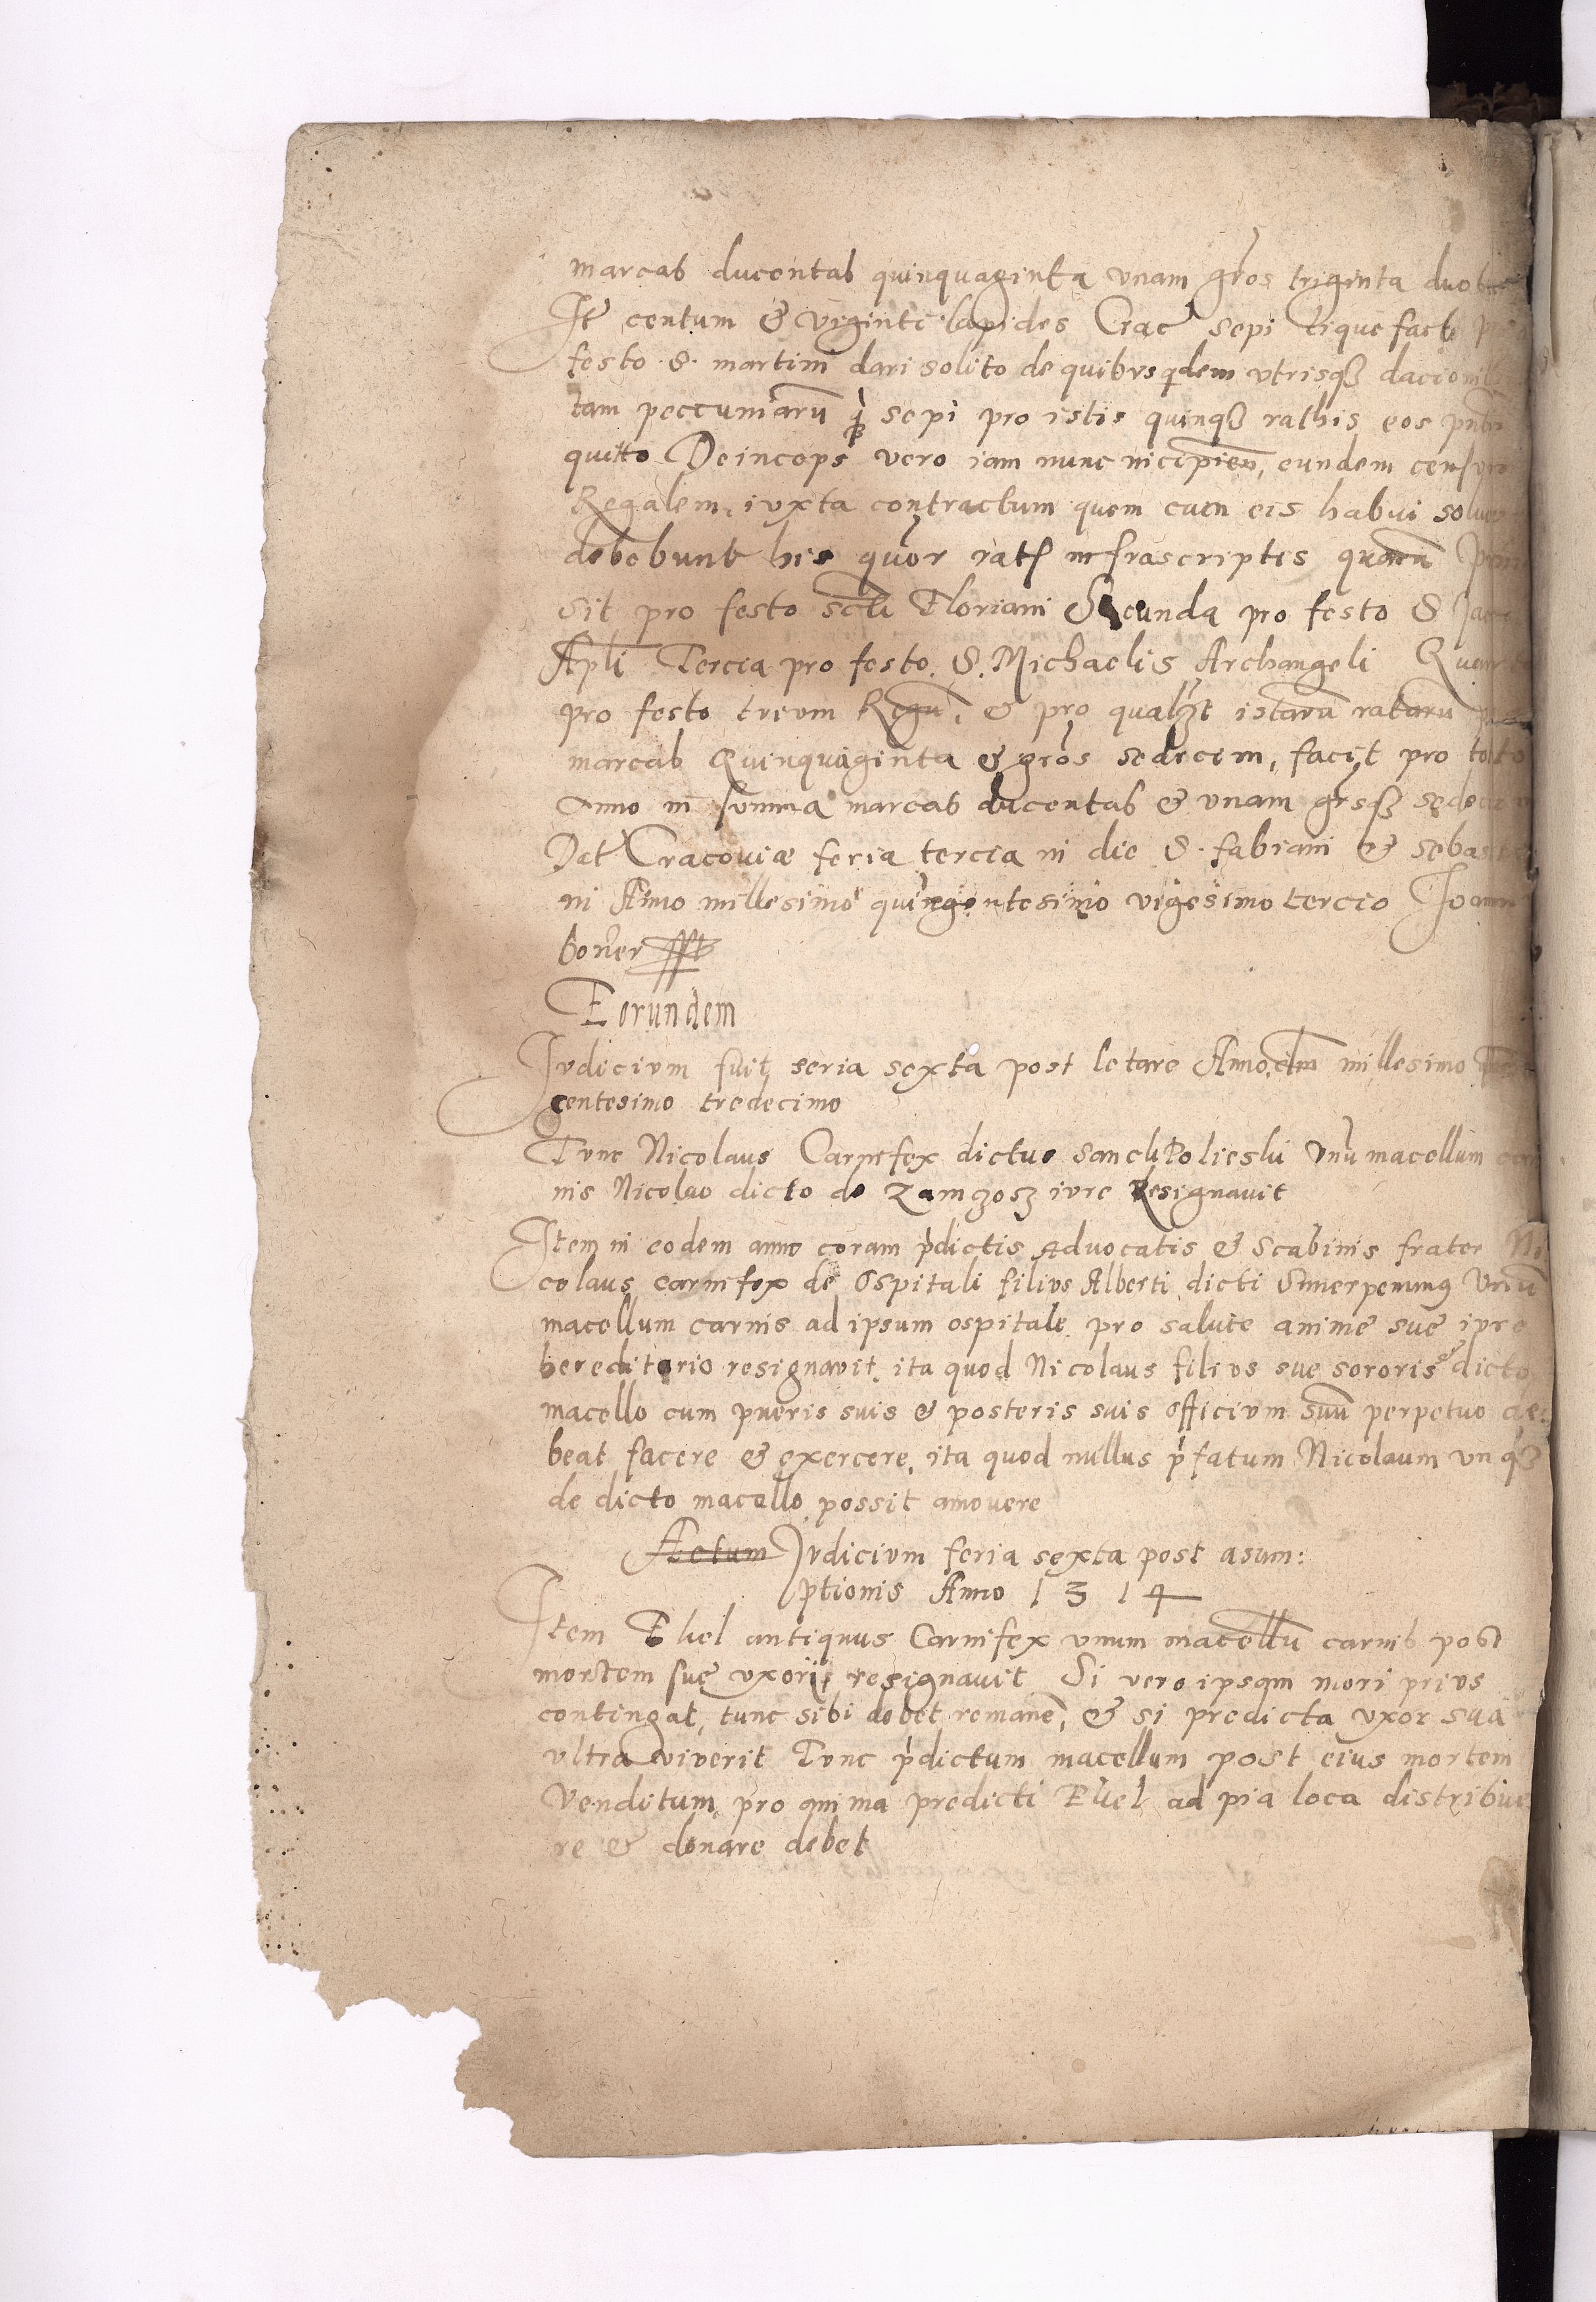 marcas ducentas quinquaginta vnam gros triginta duobus
Ite centum & viginti lapides Crac sepi liquefacti
festo S. martini dari solito de quibus qdem vtrisqz dacionib
tam peccuniaru q sepi pro istis quinqz rathis eos pnti
quitto Deinceps vero iam nunc incipien, eundem censum
Regalem, iuxta contractum quem cum eis habui solue
debebunt his quor rat infrascriptis quaru prima
sit pro festo scti Floriani Secunda pro festo S Jaco
Apli Tercia pro festo. S. Michaelis Archangeli Quarta
pro festo trium Regu, & pro qualzt istaru rataru
marcas Quinquaginta & gros sedecim, facit pro toto
Anno in summa marcas ducentas & vnam grosqz sedecim
Dat Cracoviæ feria tercia in die S. fabiani & sebastia
ni Anno millesimo quingentesimo vigesimo tercio Joann
boner
Eorundem
Judicium fuit feria sexta post letare Anno dm millesimo Tre
centesimo tredecimo
Tunc Nicolaus Carnifex dictus Unu macellum car
nis Nicolao dicto de Zamczosz iure Resignavit
Item in eodem anno coram pdictis Advocatis & Scabinis frater Ni
colaus carnifex de Ospitali filius Alberti dicti Vnu
macellum carnis ad ipsum ospitale pro salute anime sue iure
hereditario resignavit, ita quod Nicolaus filius sue sororis dicto
macello cum pueris suis & posteris suis officium suu perpetuo de:
beat facere & exercere, ita quod nullus pfatum Nicolaum vn qz
de dicto macello possit amovere
Actum Judicium feria sexta post asum:
ptionis Anno 1314
Item Ehel antiquus Carnifex vnum macellu carnis post
mortem sue vxoris resignavit Si vero ipsam mori prius
contingat, tunc sibi debet remane, & si predicta vxor sua
vltra viverit Tunc pdictum macellum post eius mortem
Venditum pro anima predicti Ehel ad pia loca distribue
re & donare debet